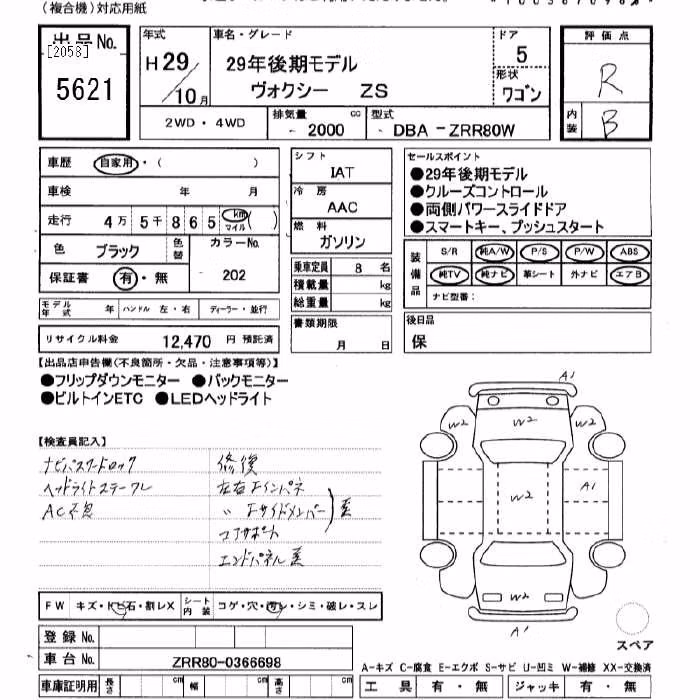 (複合機)対応用紙
出品No.
[2053]
5621
年式
H29/10月
車名・グレード
29年後期モデル
ヴォクシー ZS
ドア
5
形状
ワゴン
評価点
R
内装
B
2WD・4WD
排気量 cc
- 2000
型式
- DBA - ZRR80W
車歴 自家用・( )
車検 年 月
走行 4万 5千 865 km マイル ( )
色 ブラック 色替
カラーNo.
202
保証書 有・無
モデル年式 年 ハンドル 左・右 ディーラー・並行
リサイクル料金 12,470 円 預託済
シフト
IAT
冷房
AAC
燃料
ガソリン
乗車定員 8 名
積載量 kg
総重量 kg
書類期限
月 日
セールスポイント
●29年後期モデル
●クルーズコントロール
●両側パワースライドドア
●スマートキー、プッシュスタート
装備品
S/R 純A/W P/S P/W ABS
純TV 純ナビ 革シート 外ナビ エアB
ナビ型番:
後日品
保
【出品店申告欄(不良箇所・欠品・注意事項等)】
●フリップダウンモニター ●バックモニター
●ビルトインETC ●LEDヘッドライト
【検査員記入】
ナビパスワードロック
ヘッドライトステー
AC不良
修復
左右Fインパネ
〃 Fサイドメンバー
コアサポート
エンドパネル
A1
W2
W2
W2
W2
A1
W2
A1
FW キズ・トビ石・割レX
シート内装 コゲ・穴・汚レ・シミ・破レ・スレ
登録No.
車台No. ZRR80-0366698
車庫証明用 長さ cm 幅 cm 高さ cm
スペア
A-キズ C-腐食 E-エクボ S-サビ U-凹ミ W-補修 XX-交換済
工具 有・無 ジャッキ 有・無